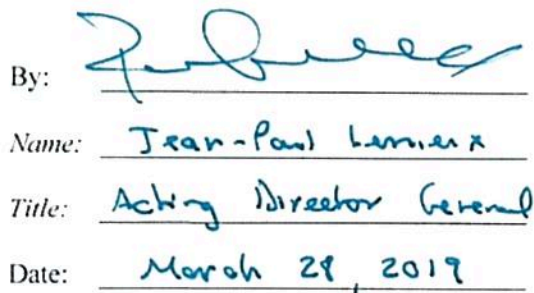 By:
Name: Jean-Paul Lemieux
Title: Acting Director General
Date: March 28, 2019